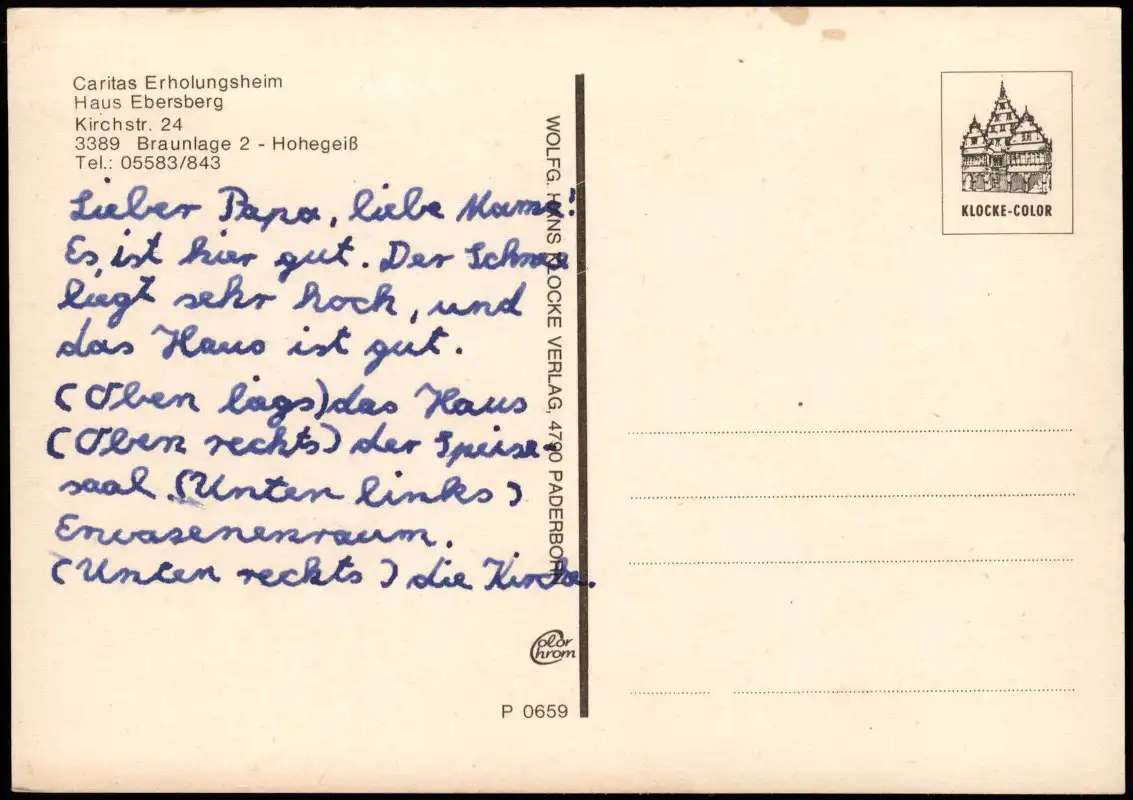 Caritas Erholungsheim
Haus Ebersberg
Kirchstr. 24
3389 Braunlage 2 - Hohegeiß
Tel.: 05583/843
Lieber Papa, liebe Mama!
Es ist hier gut. Der Schnee
liegt sehr hoch, und
das Haus ist gut.
(Oben lags) das Haus
(Oben rechts) der Speise-
saal. (Unten links)
Erwasenenraum.
(Unten rechts) die Kirche.
WOLFG. HANS KLOCKE VERLAG, 4790 PADERBORN
Color Chrom
P 0659
KLOCKE-COLOR